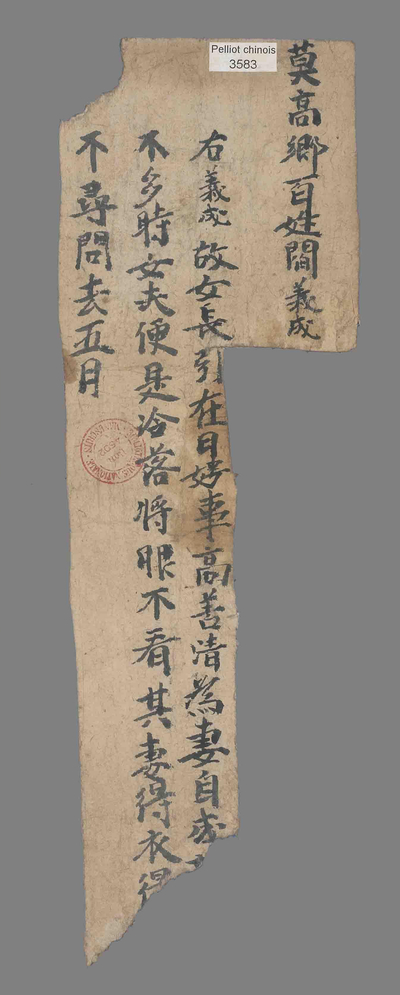 Pelliot chinois
3583
莫高鄉百姓閻義成
右義成故女長引在日娉車高善清為妻自成
不多時女夫便是冷落將眼不看其妻得衣得
不尋問去五月